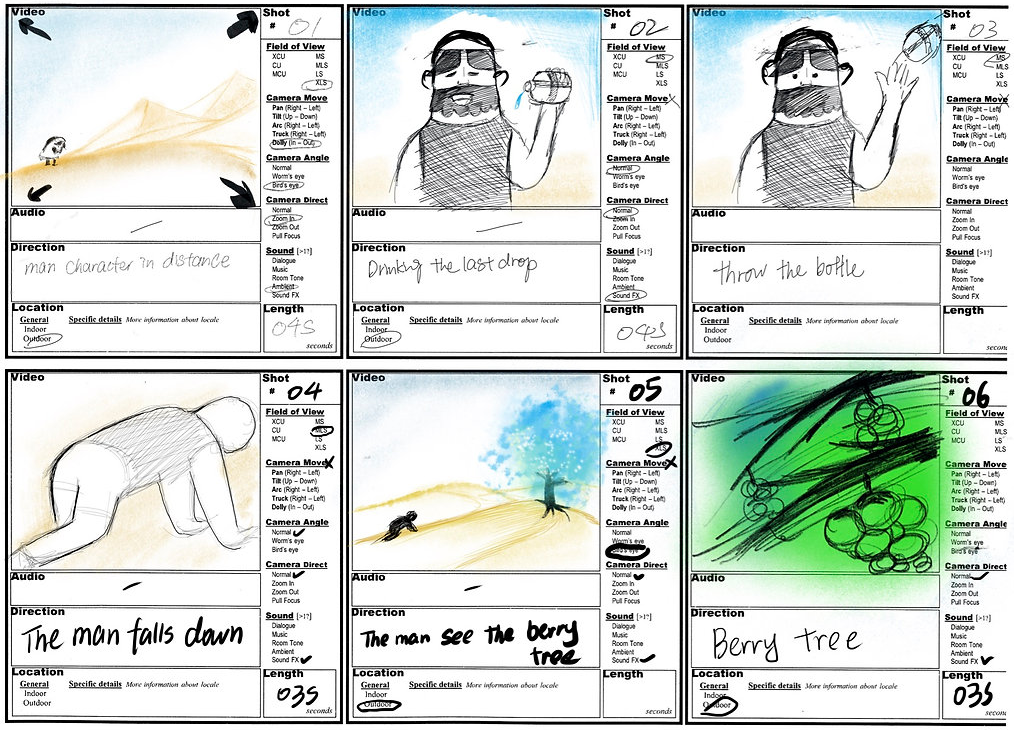 Video
Shot
# 01
Field of View
XCU MS
CU MLS
MCU LS
XLS
Camera Move
Pan (Right – Left)
Tilt (Up – Down)
Arc (Right – Left)
Truck (Right – Left)
Dolly (In – Out)
Camera Angle
Normal
Worm's eye
Bird's eye
Camera Direct
Normal
Zoom In
Zoom Out
Pull Focus
Audio
Direction
man character in distance
Sound [>1?]
Dialogue
Music
Room Tone
Ambient
Sound FX
Location
General Specific details More information about locale
Indoor
Outdoor
Length
04S
seconds
Video
Shot
# 02
Field of View
XCU MS
CU MLS
MCU LS
XLS
Camera Move X
Pan (Right – Left)
Tilt (Up – Down)
Arc (Right – Left)
Truck (Right – Left)
Dolly (In – Out)
Camera Angle
Normal
Worm's eye
Bird's eye
Camera Direct
Normal
Zoom In
Zoom Out
Pull Focus
Audio
Direction
Drinking the last drop
Sound [>1?]
Dialogue
Music
Room Tone
Ambient
Sound FX
Location
General Specific details More information about locale
Indoor
Outdoor
Length
04S
seconds
Video
Shot
# 03
Field of View
XCU MS
CU MLS
MCU LS
XLS
Camera Move
Pan (Right – Left)
Tilt (Up – Down)
Arc (Right – Left)
Truck (Right – Left)
Dolly (In – Out)
Camera Angle
Normal
Worm's eye
Bird's eye
Camera Direct
Normal
Zoom In
Zoom Out
Pull Focus
Audio
Direction
throw the bottle
Sound [>1?]
Dialogue
Music
Room Tone
Ambient
Sound FX
Location
General Specific details More information about locale
Indoor
Outdoor
Length
Video
Shot
# 04
Field of View
XCU MS
CU MLS
MCU LS
XLS
Camera Move X
Pan (Right – Left)
Tilt (Up – Down)
Arc (Right – Left)
Truck (Right – Left)
Dolly (In – Out)
Camera Angle
Normal
Worm's eye
Bird's eye
Camera Direct
Normal
Zoom In
Zoom Out
Pull Focus
Audio
Direction
The man falls down
Sound [>1?]
Dialogue
Music
Room Tone
Ambient
Sound FX
Location
General Specific details More information about locale
Indoor
Outdoor
Length
03S
seconds
Video
Shot
# 05
Field of View
XCU MS
CU MLS
MCU LS
XLS
Camera Move X
Pan (Right – Left)
Tilt (Up – Down)
Arc (Right – Left)
Truck (Right – Left)
Dolly (In – Out)
Camera Angle
Normal
Worm's eye
Bird's eye
Camera Direct
Normal
Zoom In
Zoom Out
Pull Focus
Audio
Direction
The man see the berry
tree
Sound [>1?]
Dialogue
Music
Room Tone
Ambient
Sound FX
Location
General Specific details More information about locale
Indoor
Outdoor
Length
seconds
Video
Shot
# 06
Field of View
XCU MS
CU MLS
MCU LS
XLS
Camera Move
Pan (Right – Left)
Tilt (Up – Down)
Arc (Right – Left)
Truck (Right – Left)
Dolly (In – Out)
Camera Angle
Normal
Worm's eye
Bird's eye
Camera Direct
Normal
Zoom In
Zoom Out
Pull Focus
Audio
Direction
Berry tree
Sound [>1?]
Dialogue
Music
Room Tone
Ambient
Sound FX
Location
General Specific details More information about locale
Indoor
Outdoor
Length
03S